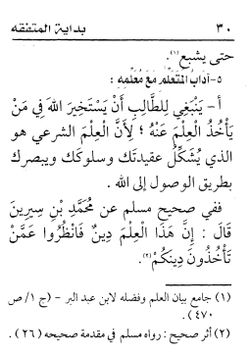 ٣٠ بداية المتفقه
حتى يشبع(١).
٥-آدَابُ المُتَعَلِّمِ مَعَ مُعَلِّمِهِ :
أ- يَنْبَغِي لِلطَّالِبِ أَنْ يَسْتَخِيرَ اللهَ فِي مَنْ
يَأْخُذُ الْعِلْمَ عَنْهُ ؛ لِأَنَّ الْعِلْمَ الشرعي هو
الذي يُشَكِّلُ عقيدتَك وسلوكَك ويبصرك
بطريق الوصول إلى الله .
ففي صحيح مسلم عن مُحَمَّدِ بْنِ سِيرِينَ
قَالَ : إِنَّ هَذَا الْعِلْمَ دِينٌ فَانْظُرُوا عَمَّنْ
تَأْخُذُونَ دِينَكُمْ.(٢)
(١) جامع بيان العلم وفضله لابن عبد البر - (ج ١/ ص
٤٧٠)
(٢) أثر صحيح : رواه مسلم في مقدمة صحيحه (٢٦) .